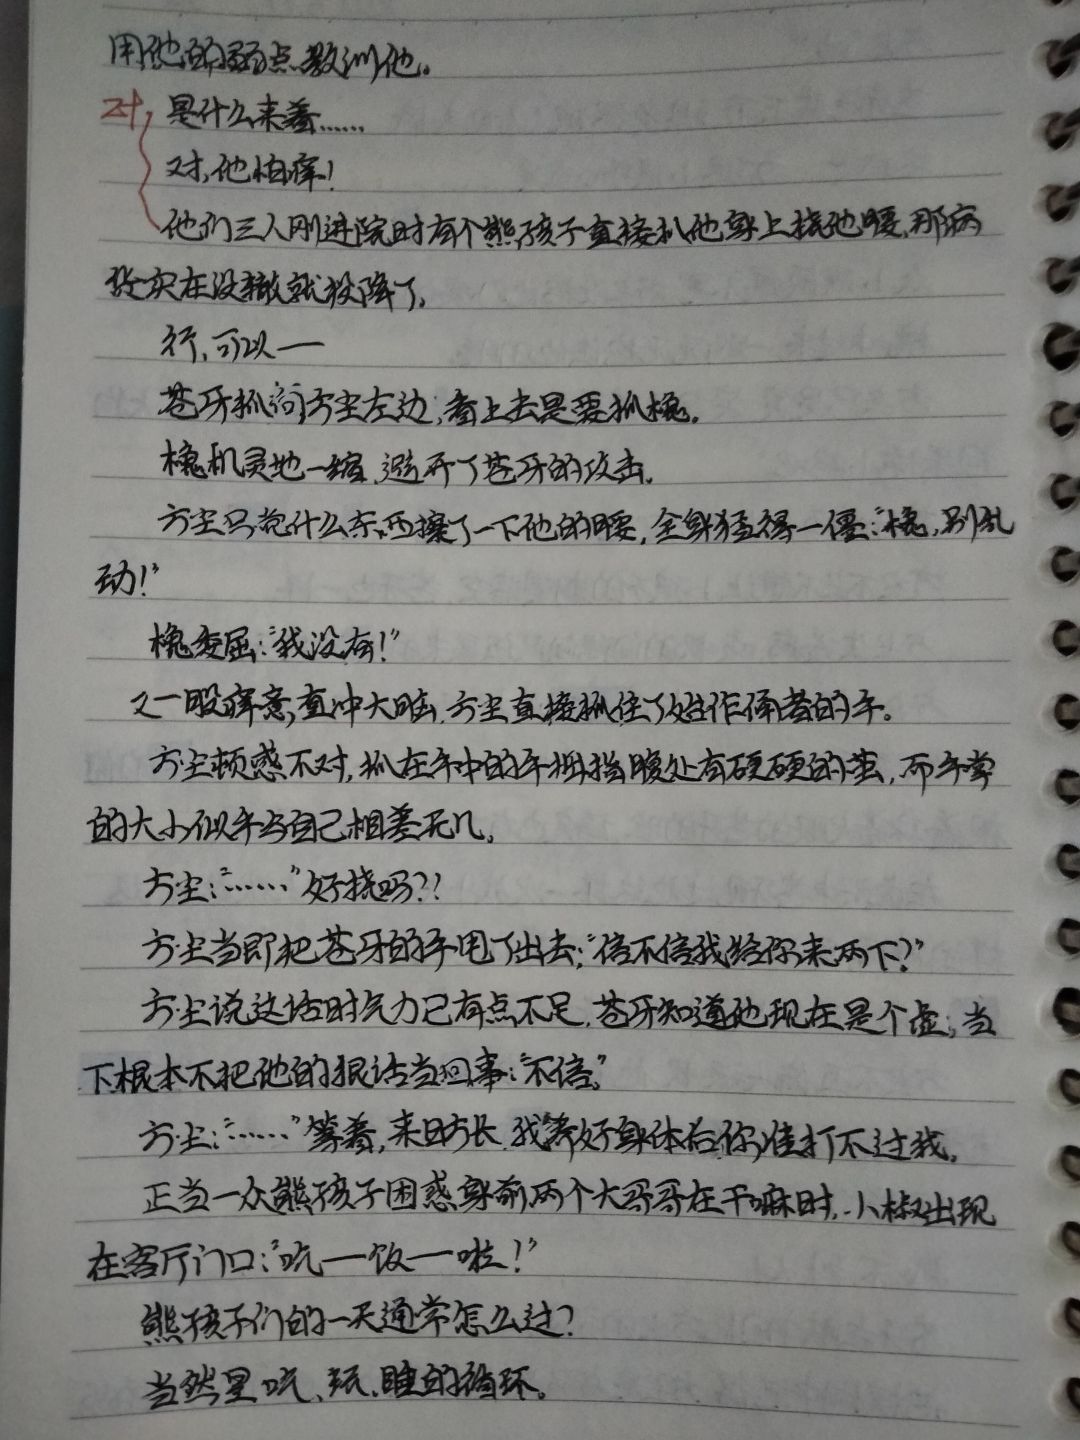 用他的弱点教训他。
对，是什么来着……
对，他怕痒！
他们三人刚进院时有个熊孩子直接扒他身上挠他腰，那病
实在没辙就投降了。
行，可以一
苍牙抓向方尘左边，看上去是要抓槐。
槐机灵地一缩，避开了苍牙的攻击。
方尘只觉什么东西擦了一下他的腰，全身猛得一僵：“槐，别乱
动！”
槐委屈：“我没有！”
又一股痒意直冲大脑，方尘直接抓住了始作俑者的手。
方尘顿感不对，抓在手中的手拇指腹处有硬硬的茧，而手掌
的大小似乎与自己相差无几。
方尘：“……”好挠吗？？
方尘当即把苍牙的手甩了出去：“信不信我给你来两下？”
方尘说这话时气力已有点不足，苍牙知道他现在是个虚，当
下根本不把他的狠话当回事：“不信。”
方尘：“……”等着，来日方长，我养好身体后你准打不过我。
正当一众熊孩子困惑身前两个大哥哥在干嘛时，小椒出现
在客厅门口：“吃一饭一啦！”
熊孩子们的一天通常怎么过？
当然是吃、玩、睡的循环。